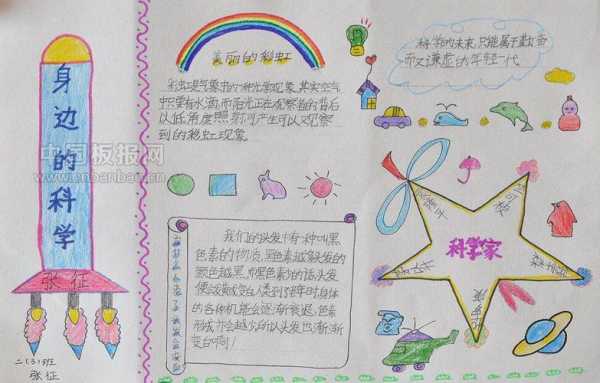 身边的科学
张征
二(3)班
张征
中国板报网
www.cnbanbao.cn
美丽的彩虹
彩虹是气象中的一种光学现象,其实空气
中只要有水滴,而阳光正在观察者的背后
以低角度照射,可产生可以观察
到的彩虹现象
科学的未来,只能属于勤奋
而又谦虚的年轻一代
我们的头发中有一种叫黑
色素的物质,黑色素越多头发的
颜色越黑,而黑色素少的话头发
便会发黄或变白,人类到了老年时,身体
的各种机能会逐渐衰退,色素
形成亦会越少,所以头发也渐渐
变白啊!
科学家